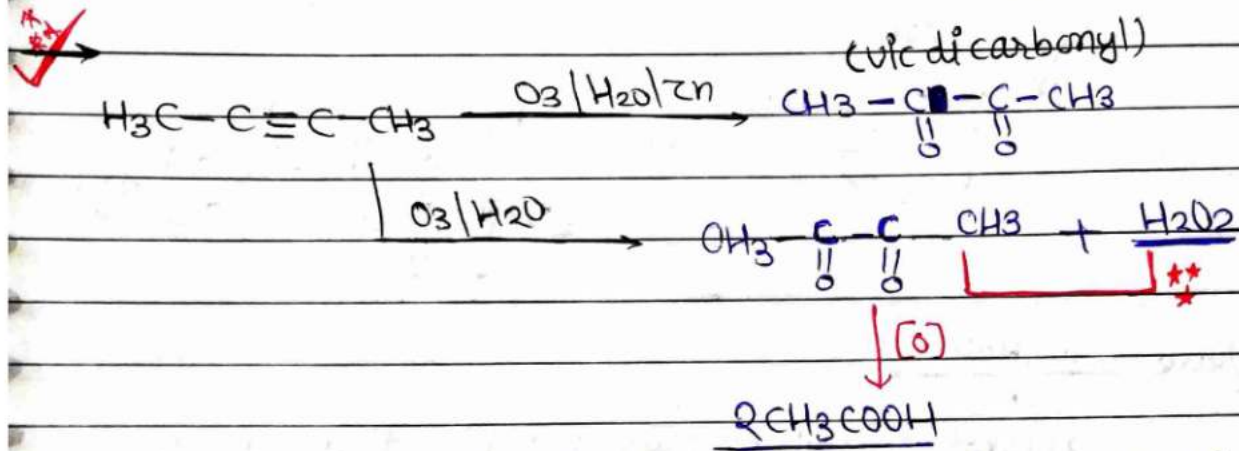 (vic dicarbonyl)
H3C-C≡C-CH3 O3/H2O/Zn CH3-C-C-CH3
O O
O3/H2O CH3-C-C CH3 + H2O2
O O
[O]
2CH3COOH